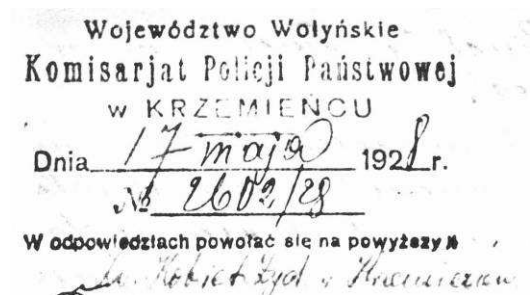 Województwo Wołyńskie
Komisarjat Policji Państwowej
w KRZEMIEŃCU
Dnia 17 maja 1928 r.
№ 2602/28
W odpowiedziach powołać się na powyższy №
Kobiet Żyd. w Krzemieńcu